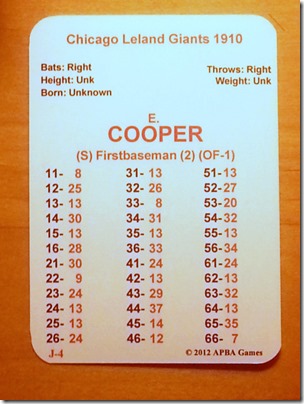 Chicago Leland Giants 1910
Bats: Right Throws: Right
Height: Unk Weight: Unk
Born: Unknown
E.
COOPER
(S) Firstbaseman (2) (OF-1)
11- 8 31- 13 51- 13
12- 25 32- 26 52- 27
13- 13 33- 8 53- 20
14- 30 34- 31 54- 32
15- 13 35- 13 55- 13
16- 28 36- 33 56- 34
21- 30 41- 24 61- 24
22- 9 42- 13 62- 13
23- 13 43- 29 63- 32
24- 13 44- 37 64- 13
25- 13 45- 14 65- 35
26- 24 46- 12 66- 7
J-4 © 2012 APBA Games